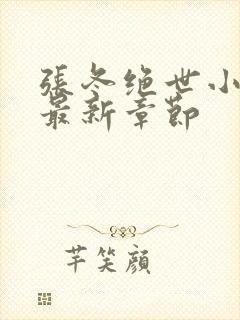 張冬绝世小
最新章節
芊笑顔